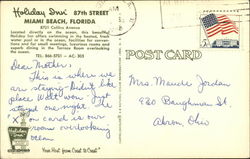 Holiday Inn 87th STREET
MIAMI BEACH, FLORIDA
8701 Collins Avenue
Located directly on the ocean, this beautiful
Holiday Inn offers swimming in the heated, fresh
water pool or in the ocean, facilities for conven-
tions and for small meetings, luxurious rooms and
superb dining in the Terrace Room overlooking
the ocean.
TEL. 866-5731 - AC: 305
POST CARD
Dear Mother:
This is where we
are staying. Didn't like
place. Will won. Just
stayed one night. The
X on card is our
room overlooking
ocean
Mrs. Maude Jordan
930 Baughman St.
Akron, Ohio
Holiday Inn
"Your Host from Coast to Coast"